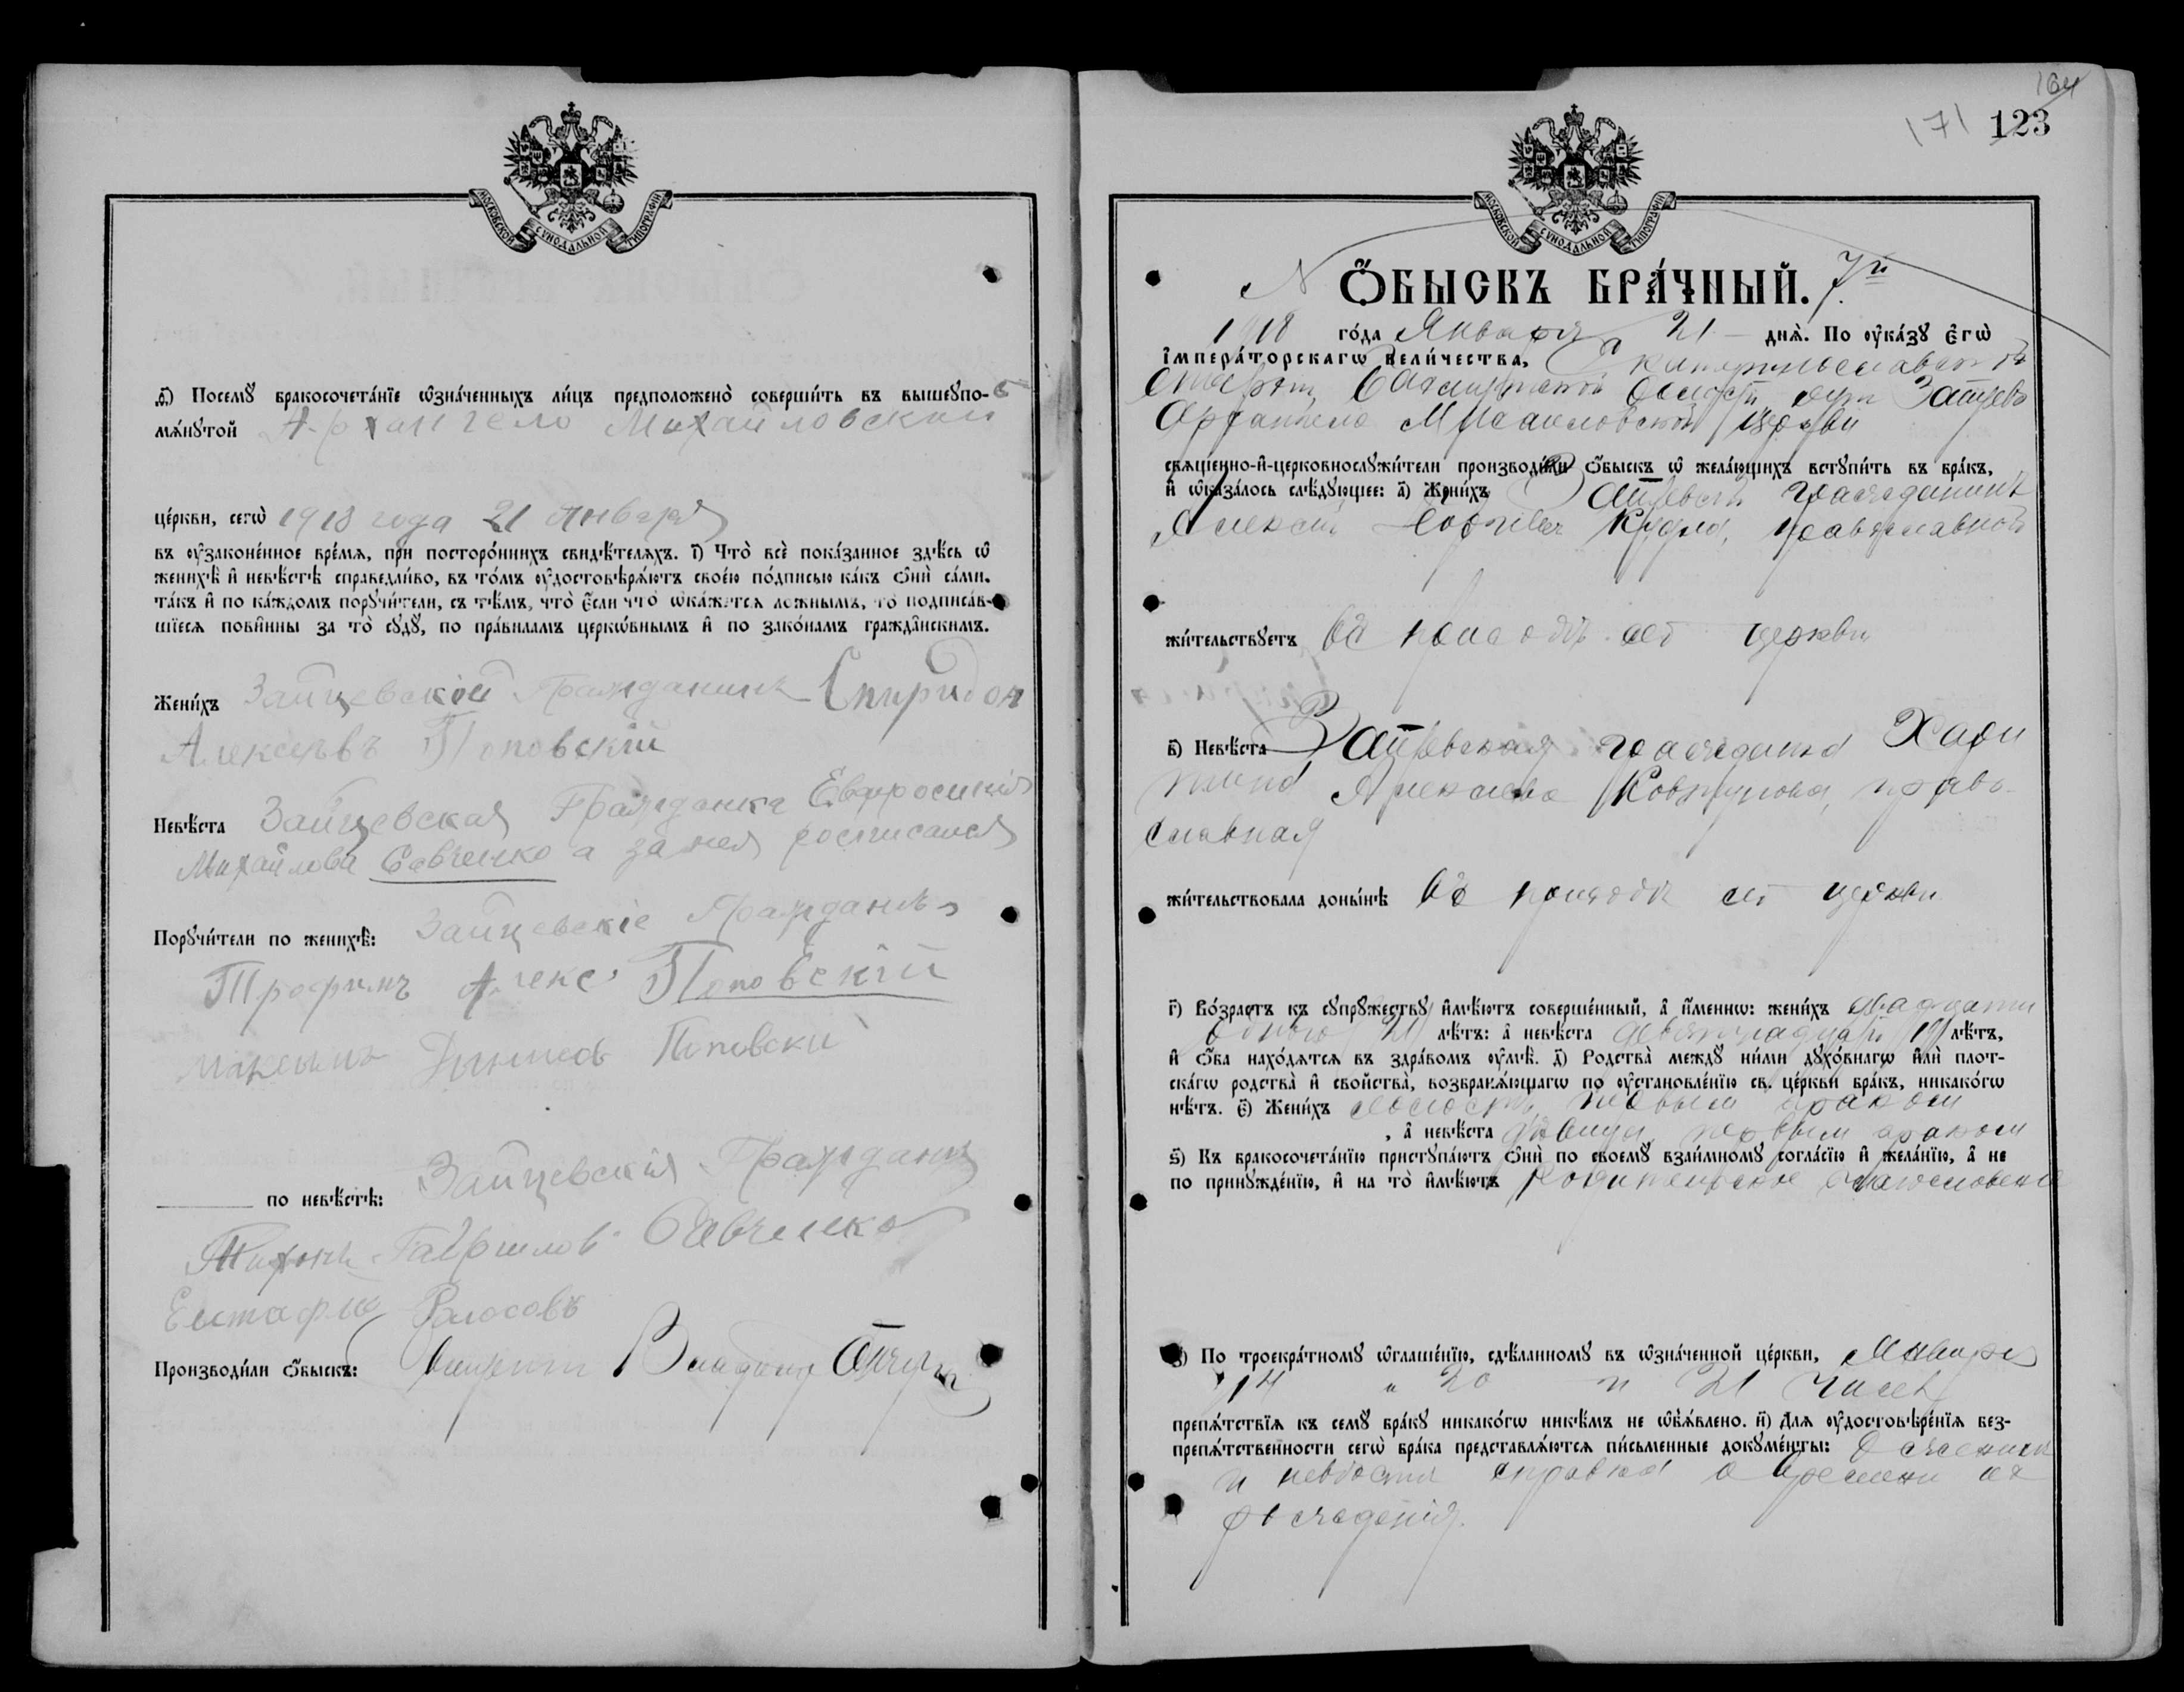 МОСКОВСКОЙ СѴНОДАЛЬНОЙ ТИПОГРАФІИ
ѳ҃) Посемꙋ̀ бракосочета́нїе ѡ҆зна́ченныхъ ли́цъ предположено̀ соверши́ть въ вышеꙋпо-
мѧ́нꙋтой Архангело Михайловской
це́ркви, сегѡ̀ 1918 года 21 Января
въ ᲂу҆законе́нное вре́мѧ, при посторо́ннихъ свидѣ́телѧхъ. і҃) Что̀ всѐ пока́занное здѣ́сь ѡ҆
женихѣ̀ и҆ невѣ́стѣ справедли́во, въ то́мъ ᲂу҆достовѣрѧ́ютъ свое́ю по́дписью ка́къ ѻ҆нѝ са́ми,
та́къ и҆ по ка́ждомъ порꙋчи́тели, съ тѣ́мъ, что̀ є҆́сли что̀ ѡ҆ка́жетсѧ ло́жнымъ, то̀ подписа́в-
шїесѧ пови́нны за то̀ сꙋдꙋ̀, по пра́виламъ церкѡ́внымъ и҆ по зако́намъ гражда́нскимъ.
Жени́хъ Зайцевскій Гражданинъ Спиридон
Алексѣевъ Поповскій
Невѣ́ста Зайцевская Гражданка Евфросинія
Михайлова Савченко а за нея росписался
Порꙋчи́тели по женихѣ̀: Зайцевскіе Граждане
Трофимъ Алекс. Поповскій
Поповски
по невѣ́стѣ: Зайцевскія Граждани
Тихонъ Гаврилов Савченко
Евстафій
Производи́ли ѻ҆́быскъ: Владимир
164
171 123
МОСКОВСКОЙ СѴНОДАЛЬНОЙ ТИПОГРАФІИ
N Ѻ҆́БЫСКЪ БРА́ЧНЫЙ. 7й
1918 го́да Января 21 днѧ̀. По ᲂу҆ка́зꙋ Є҆гѡ̀
І҆мпера́торскагѡ Вели́чества, Екатеринославской
Епархіи, Бахмутской волости, дер. Зайцево
Архангело Михайловской церкви
свѧще́нно-и҆-церковнослꙋжи́тели производи́ли ѻ҆́быскъ ѡ҆ жела́ющихъ встꙋпи́ть въ бра́къ,
и҆ ѡ҆каза́лось слѣ́дꙋющее: а҃) Жени́хъ Зайцевскій гражданинъ
Алексій Кудла, православной
жи́тельствꙋетъ въ приходѣ сей церкви
в҃) Невѣ́ста Зайцевская гражданка Хари
тина Алексѣева Ковтунова, право-
славная
жи́тельствовала доны́нѣ въ приходѣ сей церкви
г҃) Во́зрастъ къ сꙋпрꙋ́жествꙋ и҆мѣ́ютъ соверше́нный, а҆ и҆́меннѡ: жени́хъ двадцати
одного 21 лѣ́тъ: а҆ невѣ́ста девятнадцати 19 лѣ́тъ,
и҆ ѻ҆́ба нахо́дѧтсѧ въ здра́вомъ ᲂу҆мѣ̀. д҃) Родства̀ междꙋ̀ ни́ми дꙋхо́внагѡ и҆лѝ плот-
ска́гѡ родства̀ и҆ сво́йства̀, возбранѧ́ющагѡ по ᲂу҆становле́нїю св. це́ркви бра́къ, никако́гѡ
нѣ́тъ. є҃) Жени́хъ холостъ, первым браком
, а҆ невѣ́ста дѣвица, первым браком
ѕ҃) Къ бракосочета́нїю пристꙋпа́ютъ ѻ҆нѝ по своемꙋ̀ взаи́мномꙋ согла́сїю и҆ жела́нїю, а҆ не
по принꙋжде́нїю, и҆ на то̀ и҆мѣ́ютъ родительское благословеніе
з҃) По троекра́тномꙋ ѡ҆глаше́нїю, сдѣ́ланномꙋ въ ѡ҆зна́ченной це́ркви, Января
14 и 20 и 21 чисел
препѧ́тствїѧ къ семꙋ̀ бра́кꙋ никако́гѡ никѣ́мъ не ѡ҆б̾ѧ́влено. и҃) Длѧ ᲂу҆достовѣре́нїѧ без-
препѧ́тственности сегѡ̀ бра́ка представлѧ́ютсѧ пи́сьменные докꙋме́нты: О женихѣ
и невѣстѣ справка о времени их
рожденія.